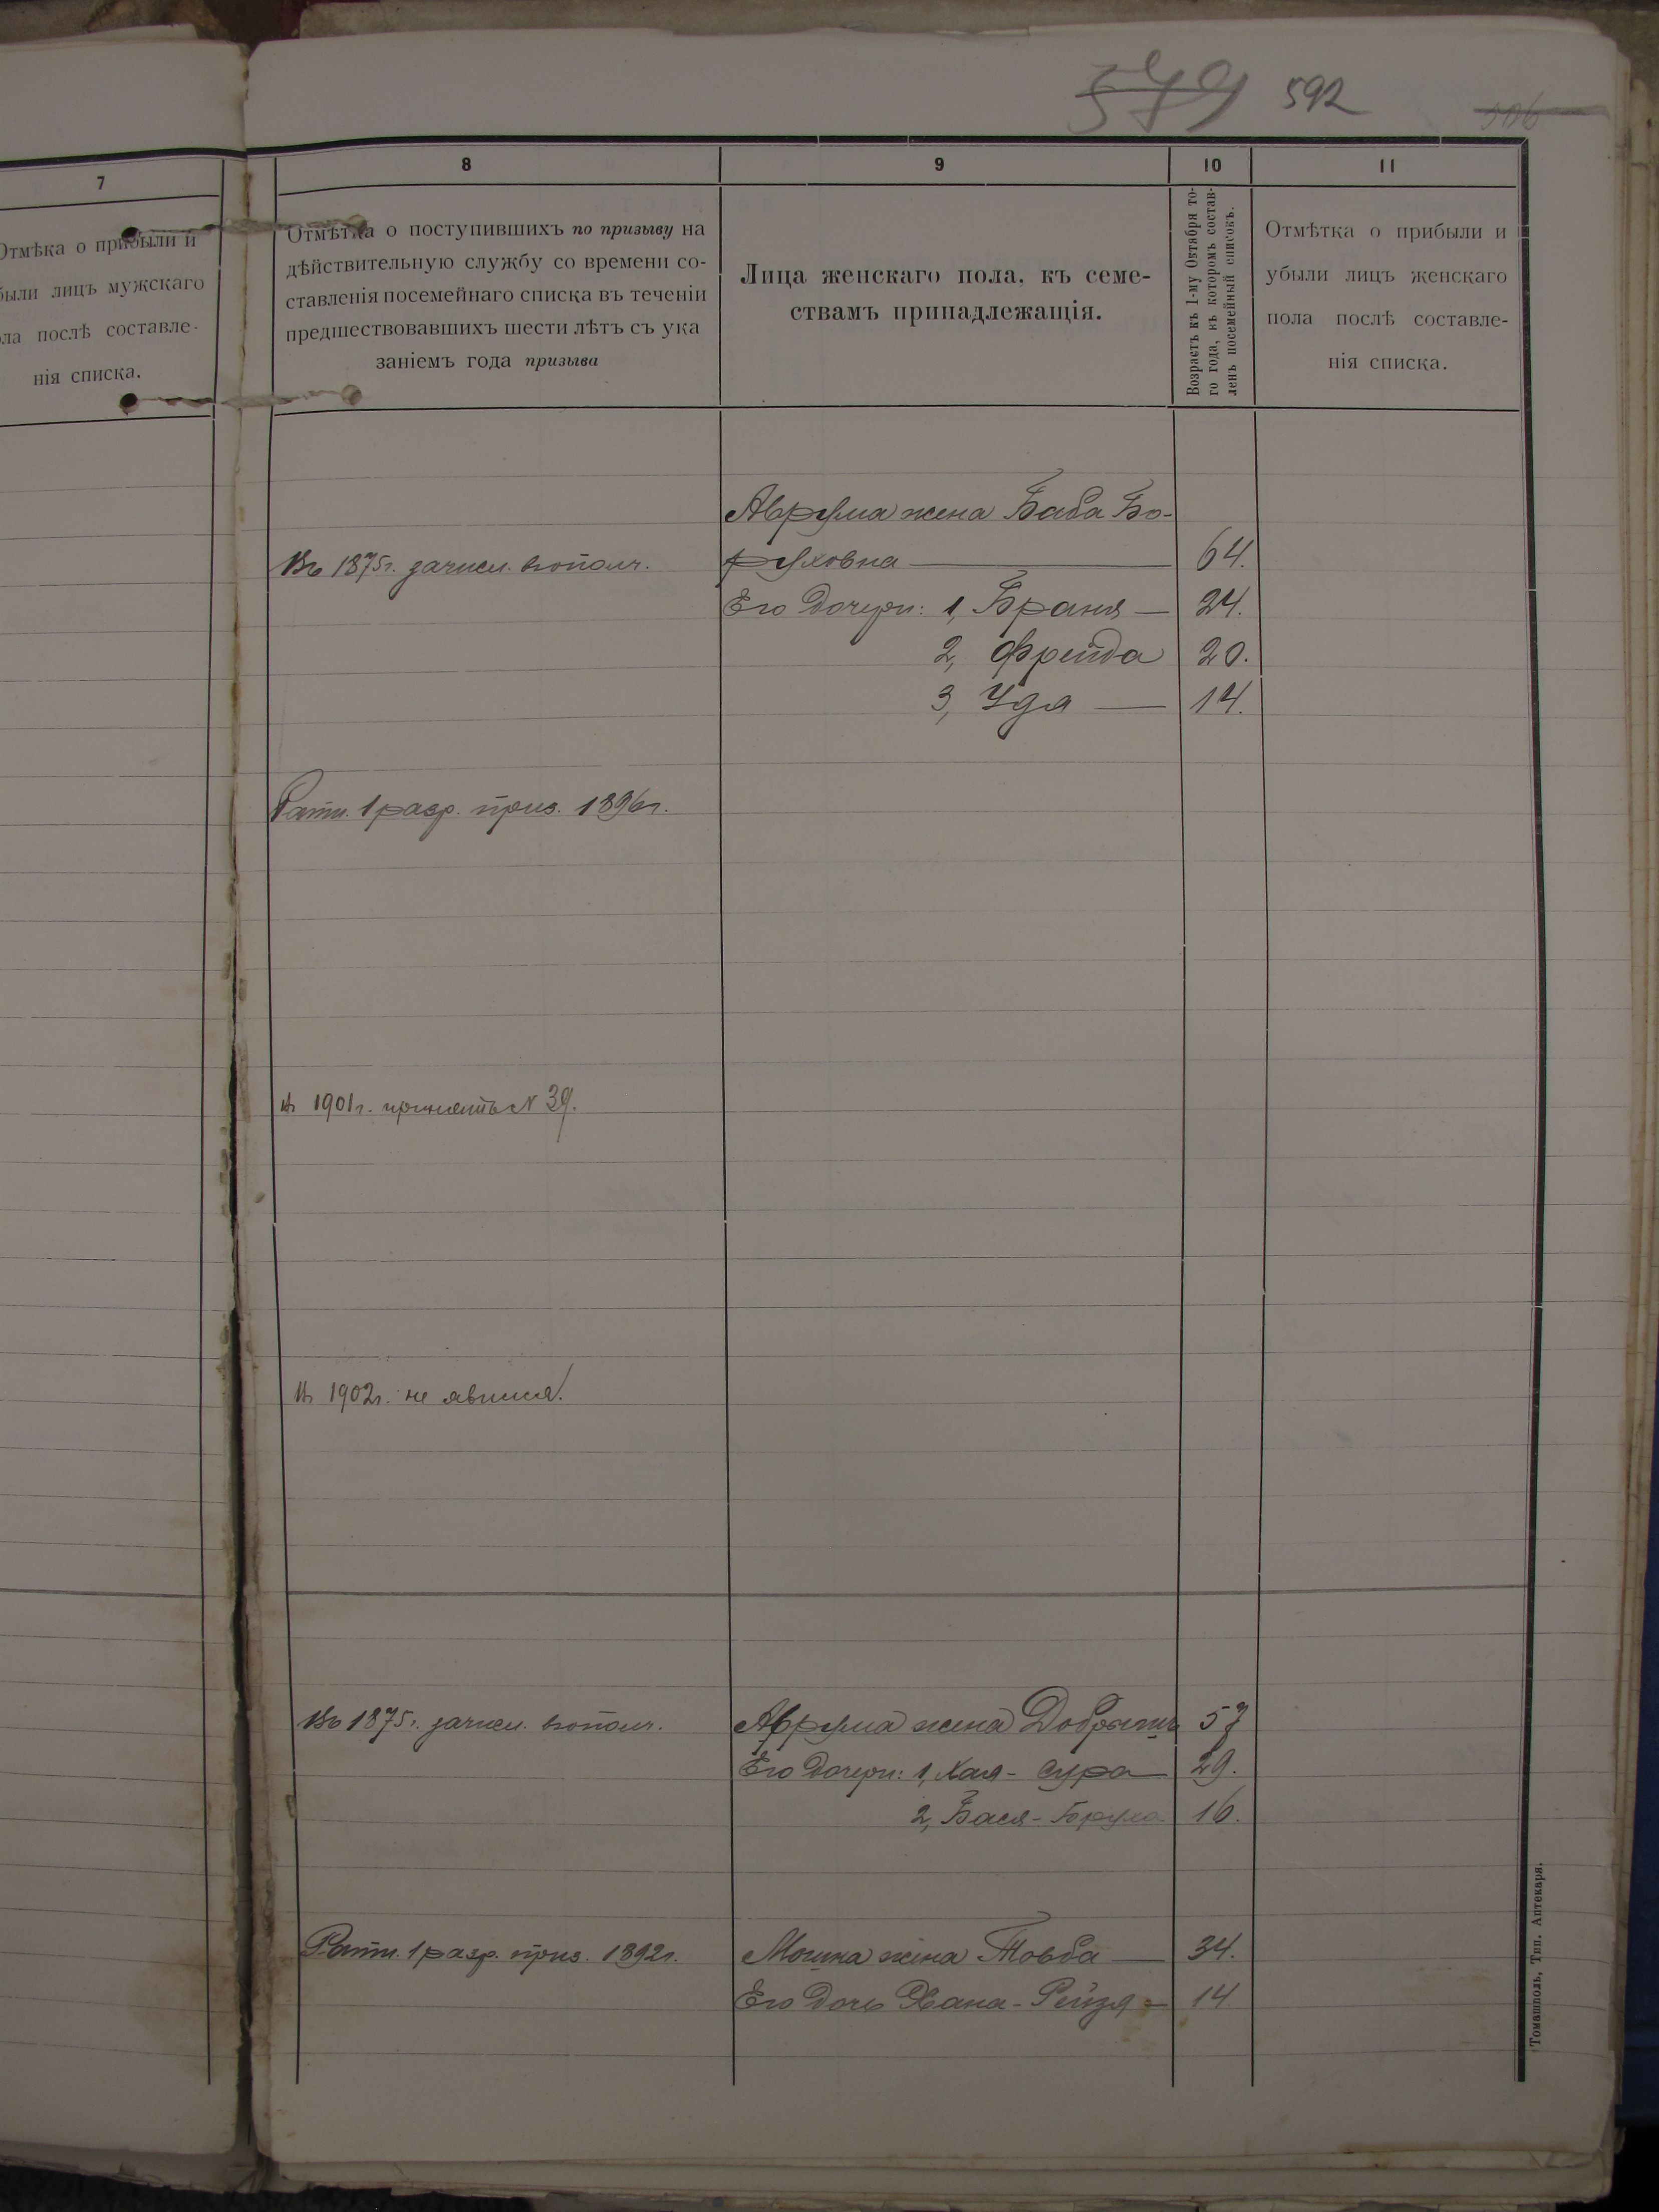 579 592
506
7
Отмѣка о прибыли и
были лицъ мужскаго
ола послѣ составле-
нія списка.
8
Отмѣтка о поступившихъ по призыву на
дѣйствительную службу со времени со-
ставленія посемейнаго списка въ теченіи
предшествовавшихъ шести лѣтъ съ ука
заніемъ года призыва
9
Лица женскаго пола, къ семе-
ствамъ принадлежащія.
10
Возрастъ къ 1-му Октября то-
го года, къ которомъ состав-
ленъ посемейный списокъ.
11
Отмѣтка о прибыли и
убыли лицъ женскаго
пола послѣ составле-
нія списка.
Аврума жена Баба Бо-
Въ 1875г. зачисл. в ополч. руховна 64.
Его дочери: 1, Браня 24.
2, Фрейда 20.
3, Удя 14.
Ратн. 1 разр. приз. 1896г.
въ 1901г. принятъ N 39.
въ 1902г. не явился.
Въ 1875г. зачисл. в ополч. Аврума жена Добрышъ 57
Его дочери: 1, Хая-Сура 29.
2, Бася-Бруха 16.
Ратн. 1 разр. приз. 1892г. Мошка жена Товба 34.
Его дочь Хана-Рейзя 14
Томашполь, Тип. Аптекаря.